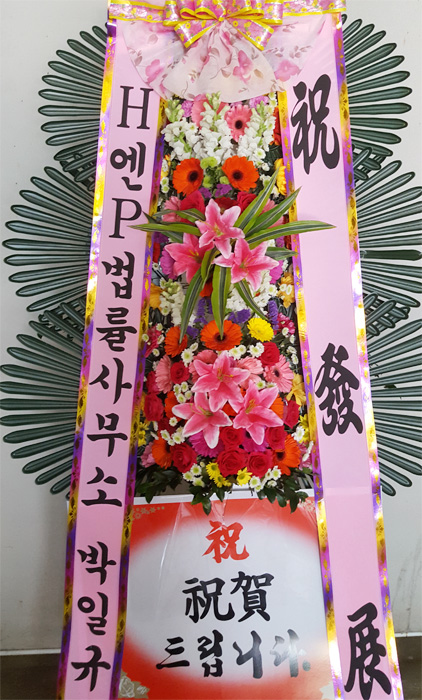 祝發展
H엔P법률사무소 박일규
祝
祝賀
드립니다.